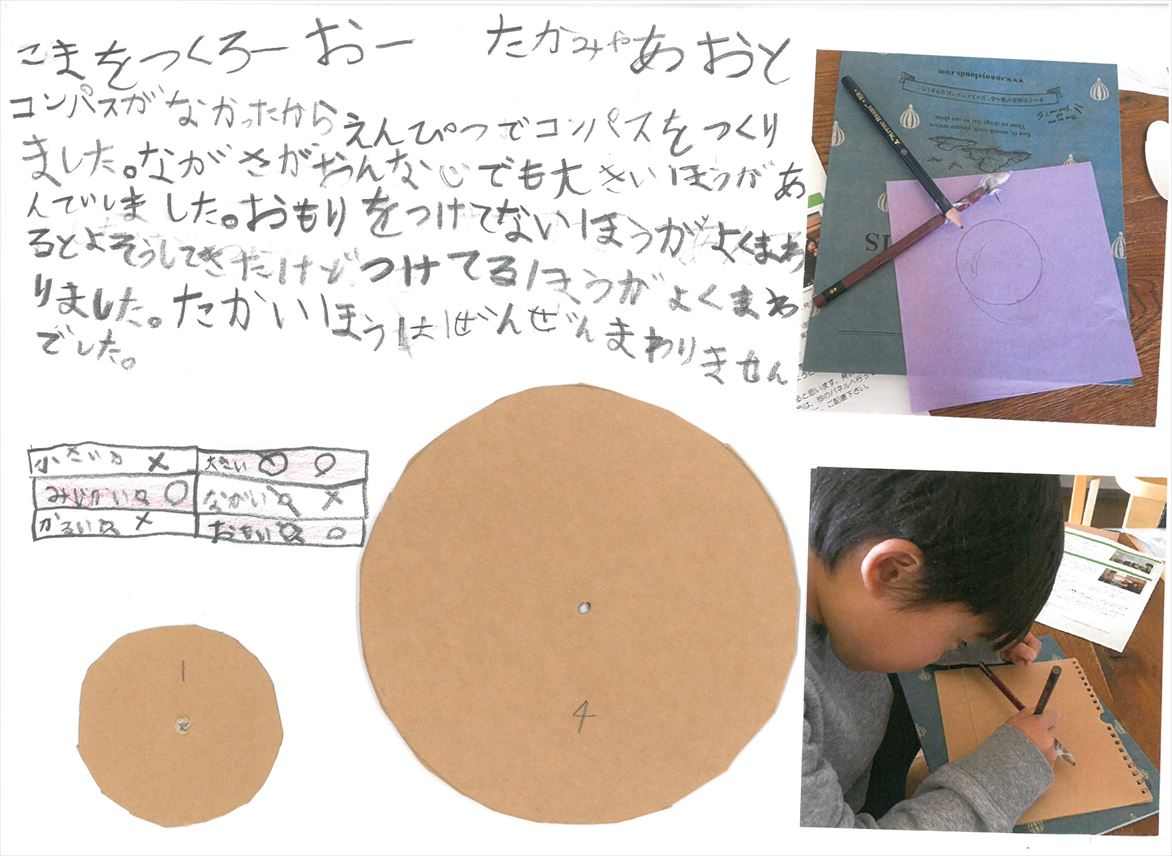 こまをつくろーおー　たかみやあおと
コンパスがなかったからえんぴつでコンパスをつくり
ました。ながさがおんなじでも大きいほうがあ
んてしました。おもりをつけてないほうがよくまわ
るとよそうしてきたけどつけてるほうがよくまわ
りました。たかいほうはぜんぜんまわりません
でした。
小さい × 大きい ○
みじかい ○ ながい ×
かるい × おもい ○
1
4
www.sunnyclouds.com
ると思います。
ご配慮下さい。